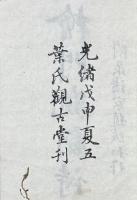 光緒戊申夏五
葉氏觀古堂刊